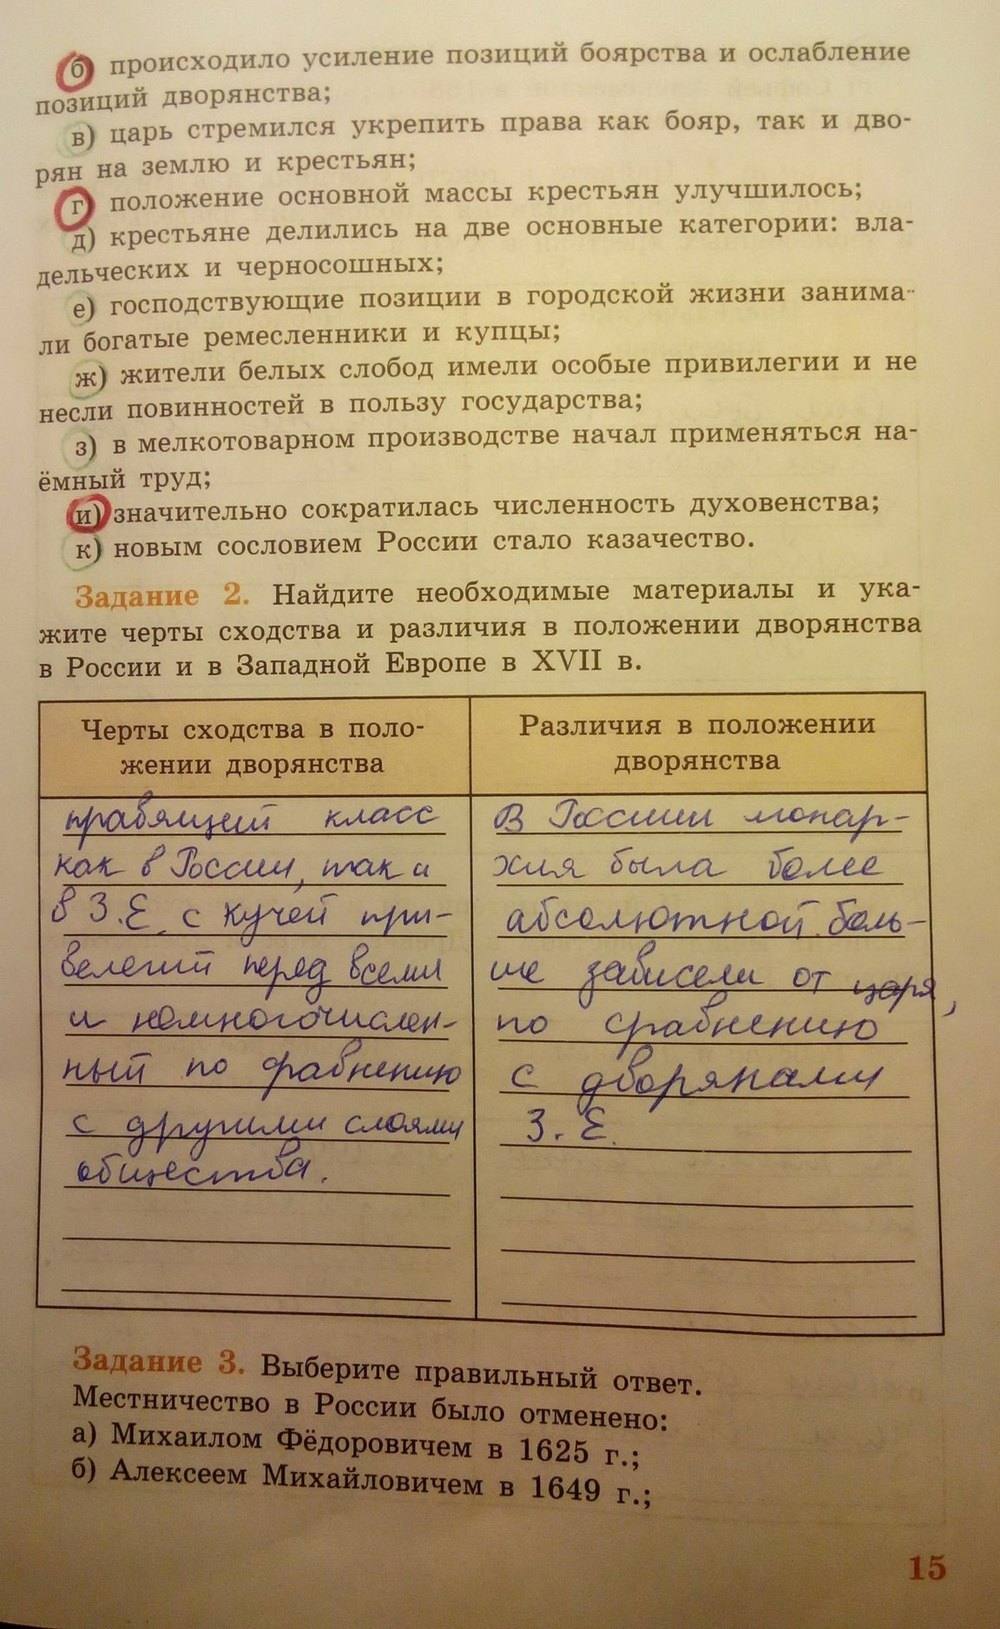 б) происходило усиление позиций боярства и ослабление
позиций дворянства;
в) царь стремился укрепить права как бояр, так и дво-
рян на землю и крестьян;
г) положение основной массы крестьян улучшилось;
д) крестьяне делились на две основные категории: вла-
дельческих и черносошных;
е) господствующие позиции в городской жизни занима-
ли богатые ремесленники и купцы;
ж) жители белых слобод имели особые привилегии и не
несли повинностей в пользу государства;
з) в мелкотоварном производстве начал применяться на-
ёмный труд;
и) значительно сократилась численность духовенства;
к) новым сословием России стало казачество.
Задание 2. Найдите необходимые материалы и ука-
жите черты сходства и различия в положении дворянства
в России и в Западной Европе в XVII в.
Черты сходства в поло-
жении дворянства
правящий класс
как в России, так и
в З.Е. с кучей при-
велегий перед всеми
и немногочислен-
ный по сравнению
с другими слоями
общества.
Различия в положении
дворянства
В России монар-
хия была более
абсолютной. боль-
ше зависели от царя,
по сравнению
с дворянами
З.Е.
Задание 3. Выберите правильный ответ.
Местничество в России было отменено:
а) Михаилом Фёдоровичем в 1625 г.;
б) Алексеем Михайловичем в 1649 г.;
15